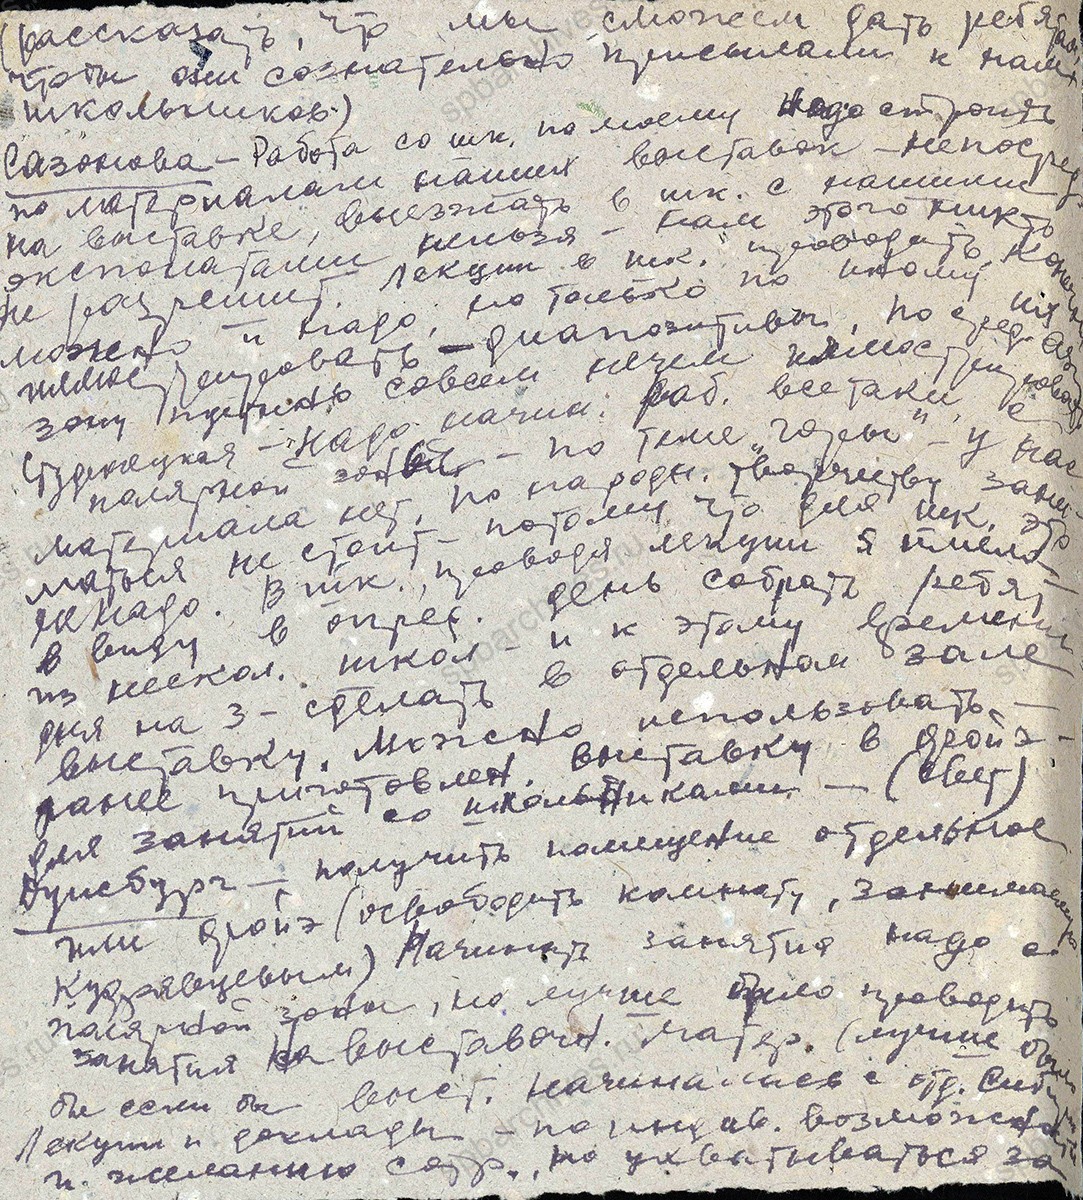 (рассказать, что мы сможем дать ребятам,
чтобы они сознательно присылали к нам
школьников)
Сазонова – Работа со шк. по моему надо строить
по материалам наших выставок – непосред.
на выставке, выезжать в шк. с нашими
экспонатами нельзя – нам этого никто
не разрешит. Лекции в шк. проводить, конечно
можно и надо, но только по иному их
иллюстрировать – диапозитивы, по сред. Аз.
залу нужно совсем нечем иллюстрировать
Студенецкая – Надо начин. раб. все таки, с
полярной зоны – по теме "горы" – у нас
материала нет, по народн. творчеству зани-
маться не стоит – потому что для шк. это
не надо. В шк., проводя лекции я имела
в виду в опред. день собрать ребят
из нескол. школ – и к этому времени
дня на 3 – сделать в отдельном зале
выставку. Можно использовать –
ранее приготовлен. выставку в фойэ –
для занятий со школьниками – (свет)
Дуисбург – получить помещение отдельное
или фойэ (освободить комнату, занимаемую
Кудрявцевым) Начинать занятия надо с
полярной зоны, но лучше было проводить
занятия на выставочн. матер. (лучше было
бы если бы выст. начиналась с отд. Сибири
Лекции и доклады – по индив. возможности
и желанию сотр., но ухватываться за